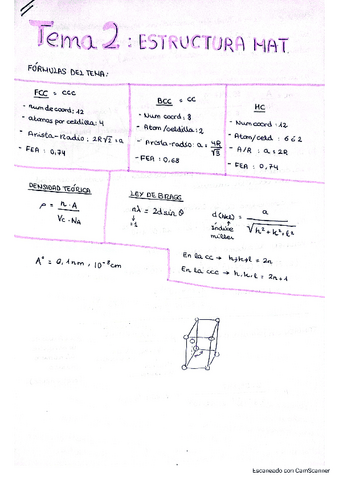 Tema 2: ESTRUCTURA MAT.
FÓRMULAS DEL TEMA:
FCC = CCC
- num de coord: 12
- atomos por celdilla: 4
- Arista-Radio: 2R√2 = a
- FEA: 0,74
BCC = CC
- Num coord: 8
- Atom/celdilla: 2
- Arista-radio: a = 4R/√3
- FEA: 0,68
HC
- Num coord: 12
- Atom/celd: 6 ó 2
- A/R: a = 2R
- FEA: 0,74
DENSIDAD TEÓRICA
ρ = n·A / Vc·NA
LEY DE BRAGG
nλ = 2d sin θ
↓
=1
d(hkl) = a / √h²+k²+l²
↑
índice
miller
A° = 0,1nm, 10⁻⁸cm
En la cc → h+k+l = 2n
En la ccc → h,k,l = 2n+1
Escaneado con CamScanner